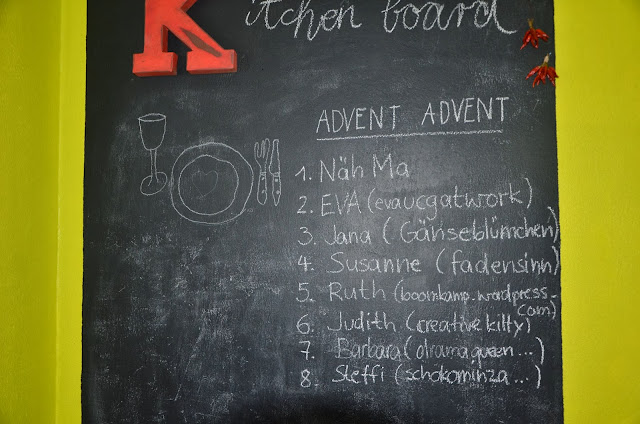 Kitchen board
ADVENT ADVENT
1. Näh Ma
2. EVA (evaucgatwork)
3. Jana (Gänseblümchen)
4. Susanne (fadensinn)
5. Ruth (booomkamp.wordpress.
com)
6. Judith (creative kitty)
7. Barbara (dramaqueen...)
8. Steffi (schokominza...)